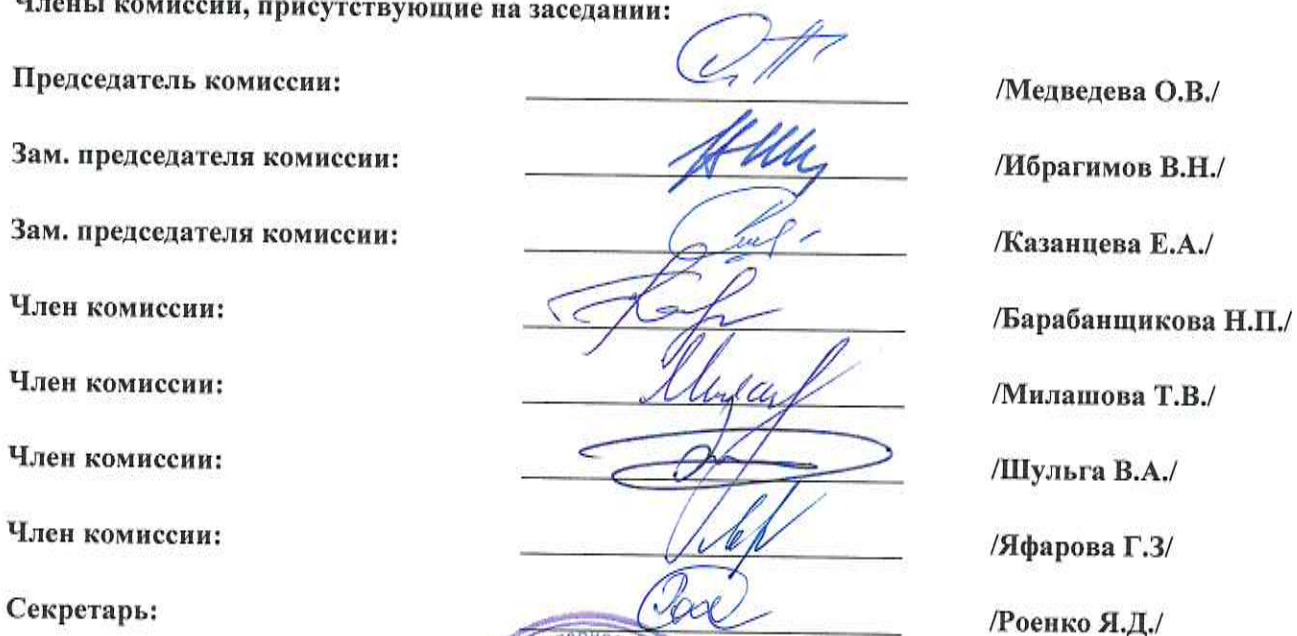 Члены комиссии, присутствующие на заседании:
Председатель комиссии: /Медведева О.В./
Зам. председателя комиссии: /Ибрагимов В.Н./
Зам. председателя комиссии: /Казанцева Е.А./
Член комиссии: /Барабанщикова Н.П./
Член комиссии: /Милашова Т.В./
Член комиссии: /Шульга В.А./
Член комиссии: /Яфарова Г.З/
Секретарь: /Роенко Я.Д./